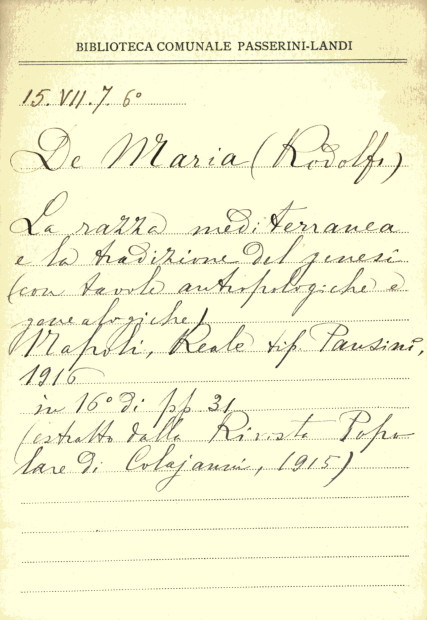 BIBLIOTECA COMUNALE PASSERINI-LANDI
15. VII. 7. 6º
De Maria (Rodolfo)
La razza mediterranea
e la tradizione del genesi
(con tavole antropologiche e
genealogiche)
Napoli, Reale tip. Pansini,
1916
in 16º di pp 31
(estratto dalla Rivista Popo
lare di Colajanni, 1915)